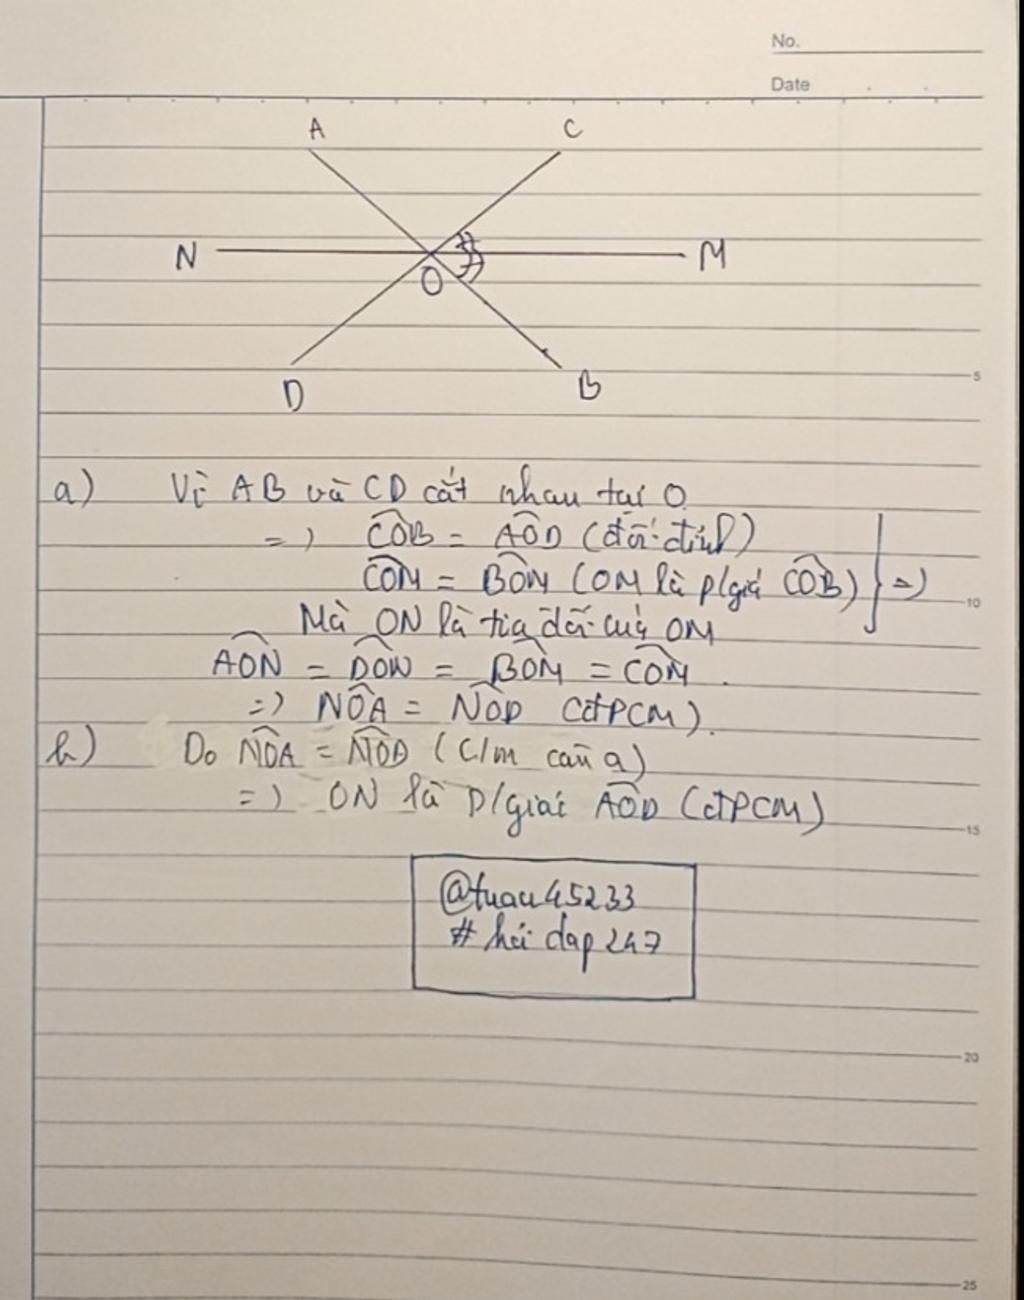 No.
Date
A C
N M
O
D B
5
a) Vì AB và CD cắt nhau tại O
=) CÔB = AÔD (đối đỉnh)
CÔM = BÔM (OM là p/giá CÔB) } =)
10
Mà ON là tia đối của OM
AÔN = DÔN = BÔM = CÔM.
=) NÔA = NÔD (đPCM).
b) Do NÔA = NÔD (C/m câu a)
=) ON là p/giác AÔD (đPCM)
15
@tuau45233
# hỏi dap 247
20
25